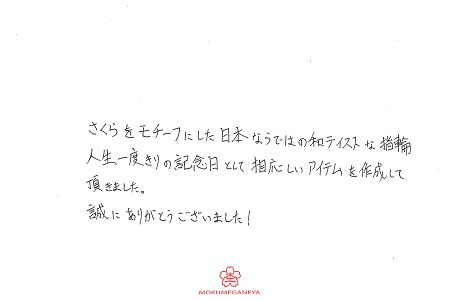 さくらをモチーフにした日本ならではの和テイストな指輪
人生一度きりの記念日として相応しいアイテムを作成して
頂きました。
誠にありがとうございました!
MOKUMEGANEYA